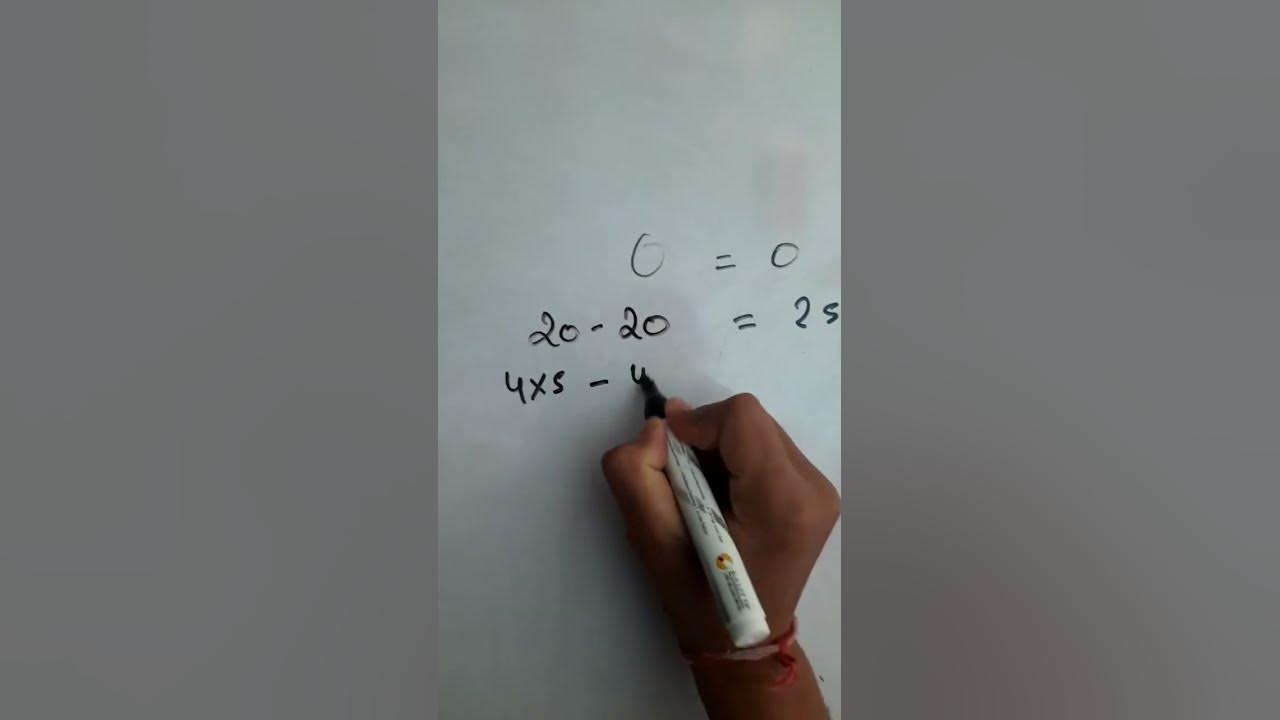 0 = 0
20 - 20 = 25
4x5 - 4